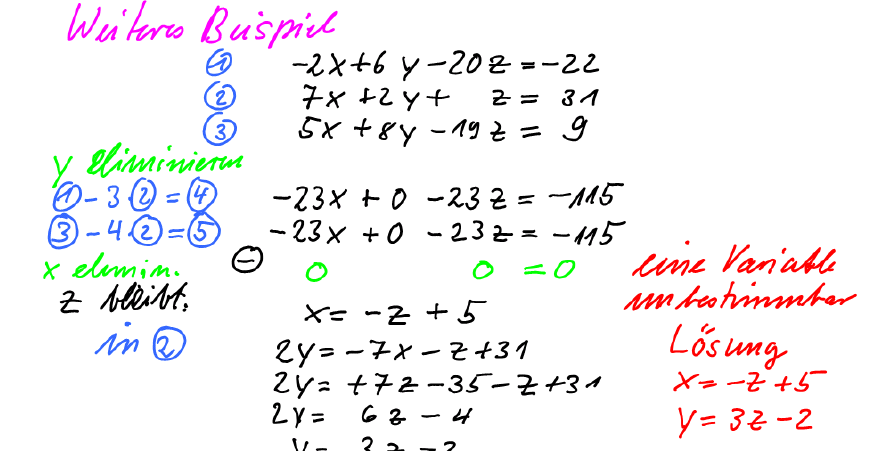 Weiteres Beispiel
① -2x+6y-20z=-22
② 7x+2y+ z= 31
③ 5x+8y-19z= 9
y eliminieren
①-3·②=④ -23x+0 -23z=-115
③-4·②=⑤ -23x+0 -23z=-115
x elimin. ⊖ 0 0 =0
z bleibt. x= -z+5
in ② 2y=-7x-z+31
2y=+7z-35-z+31
2y= 6z-4
y= 3z-2
eine Variable
unbestimmbar
Lösung
x=-z+5
y=3z-2